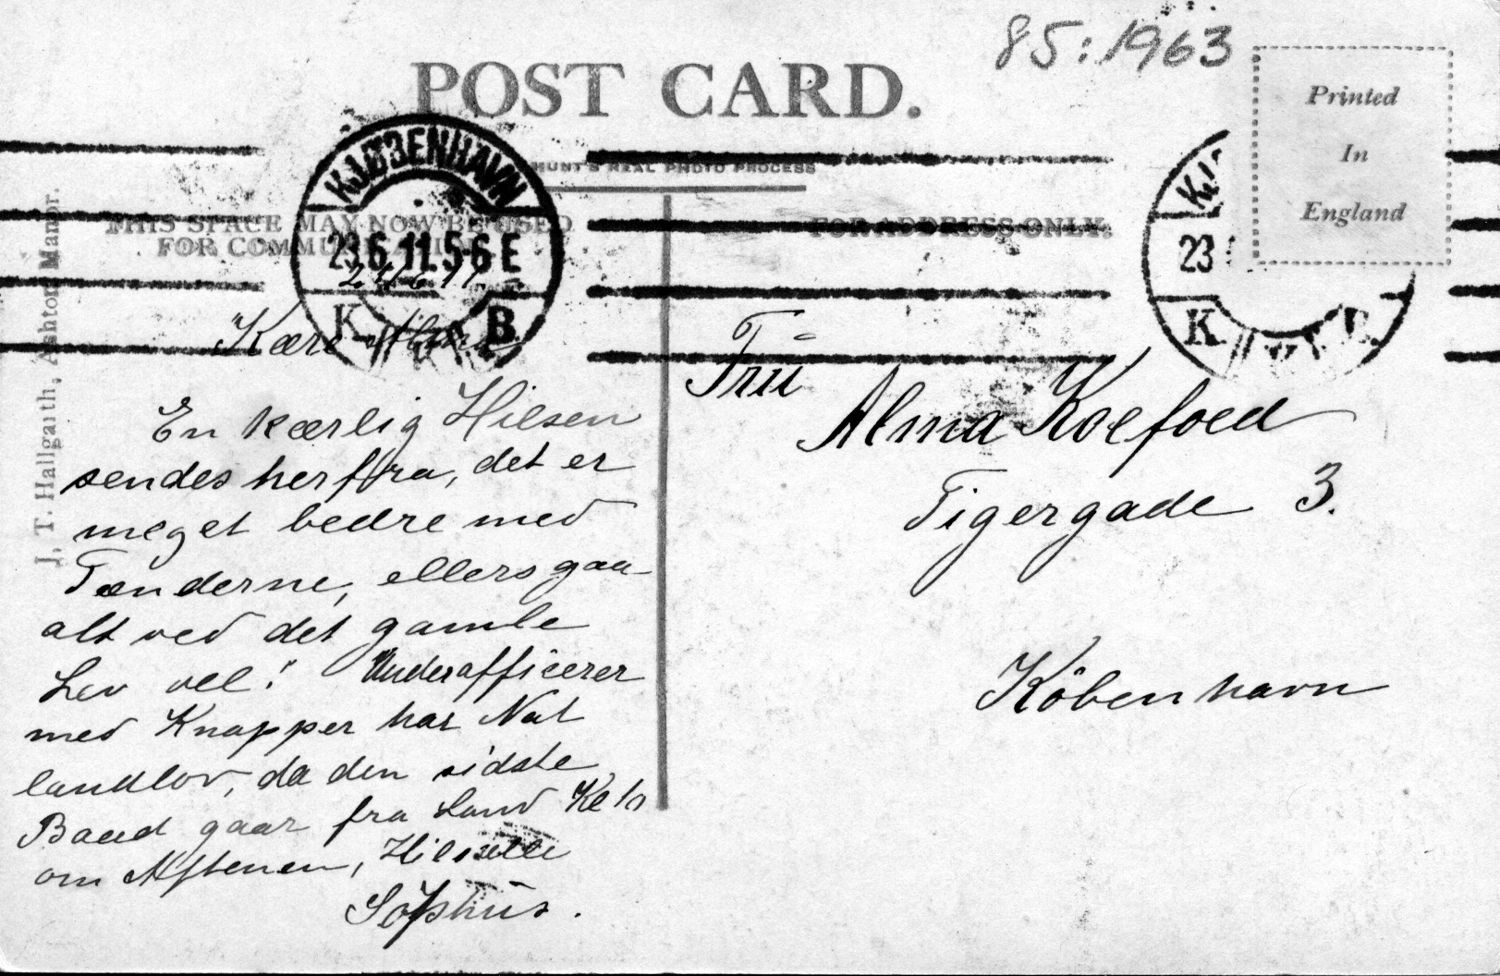 85:1963
POST CARD.
HUNT'S REAL PHOTO PROCESS
Printed
In
England
THIS SPACE MAY NOW BE USED
FOR COMMUNICATION
FOR ADDRESS ONLY.
J. T. Hallgaith, Ashton Manor.
KJØBENHAVN
23.6.11.5-6 E
K. B.
23
K. B.
6.11
Kære Alma
En kærlig Hilsen
sendes herfra, det er
meget bedre med
Tænderne, ellers gaa
alt ved det gamle
Lev vel! Underofficerer
med Knapper har Nat
landlov, da den sidste
Baad gaar fra Land Kl 10
om Aftenen, Hilsette
Sophus.
Frü
Alma Koefoed
Tigergade 3.
Köbenhavn